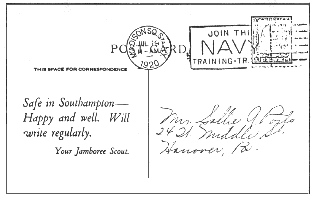 MADISON SQ. STA.
JUL 19
1920
JOIN THE
NAVY
TRAINING-TRAVEL
POSTCARD
THIS SPACE FOR CORRESPONDENCE
Safe in Southampton—
Happy and well. Will
write regularly.
Your Jamboree Scout.
Mrs. Sallie A
24 Middle St.
Hanover, Pa.